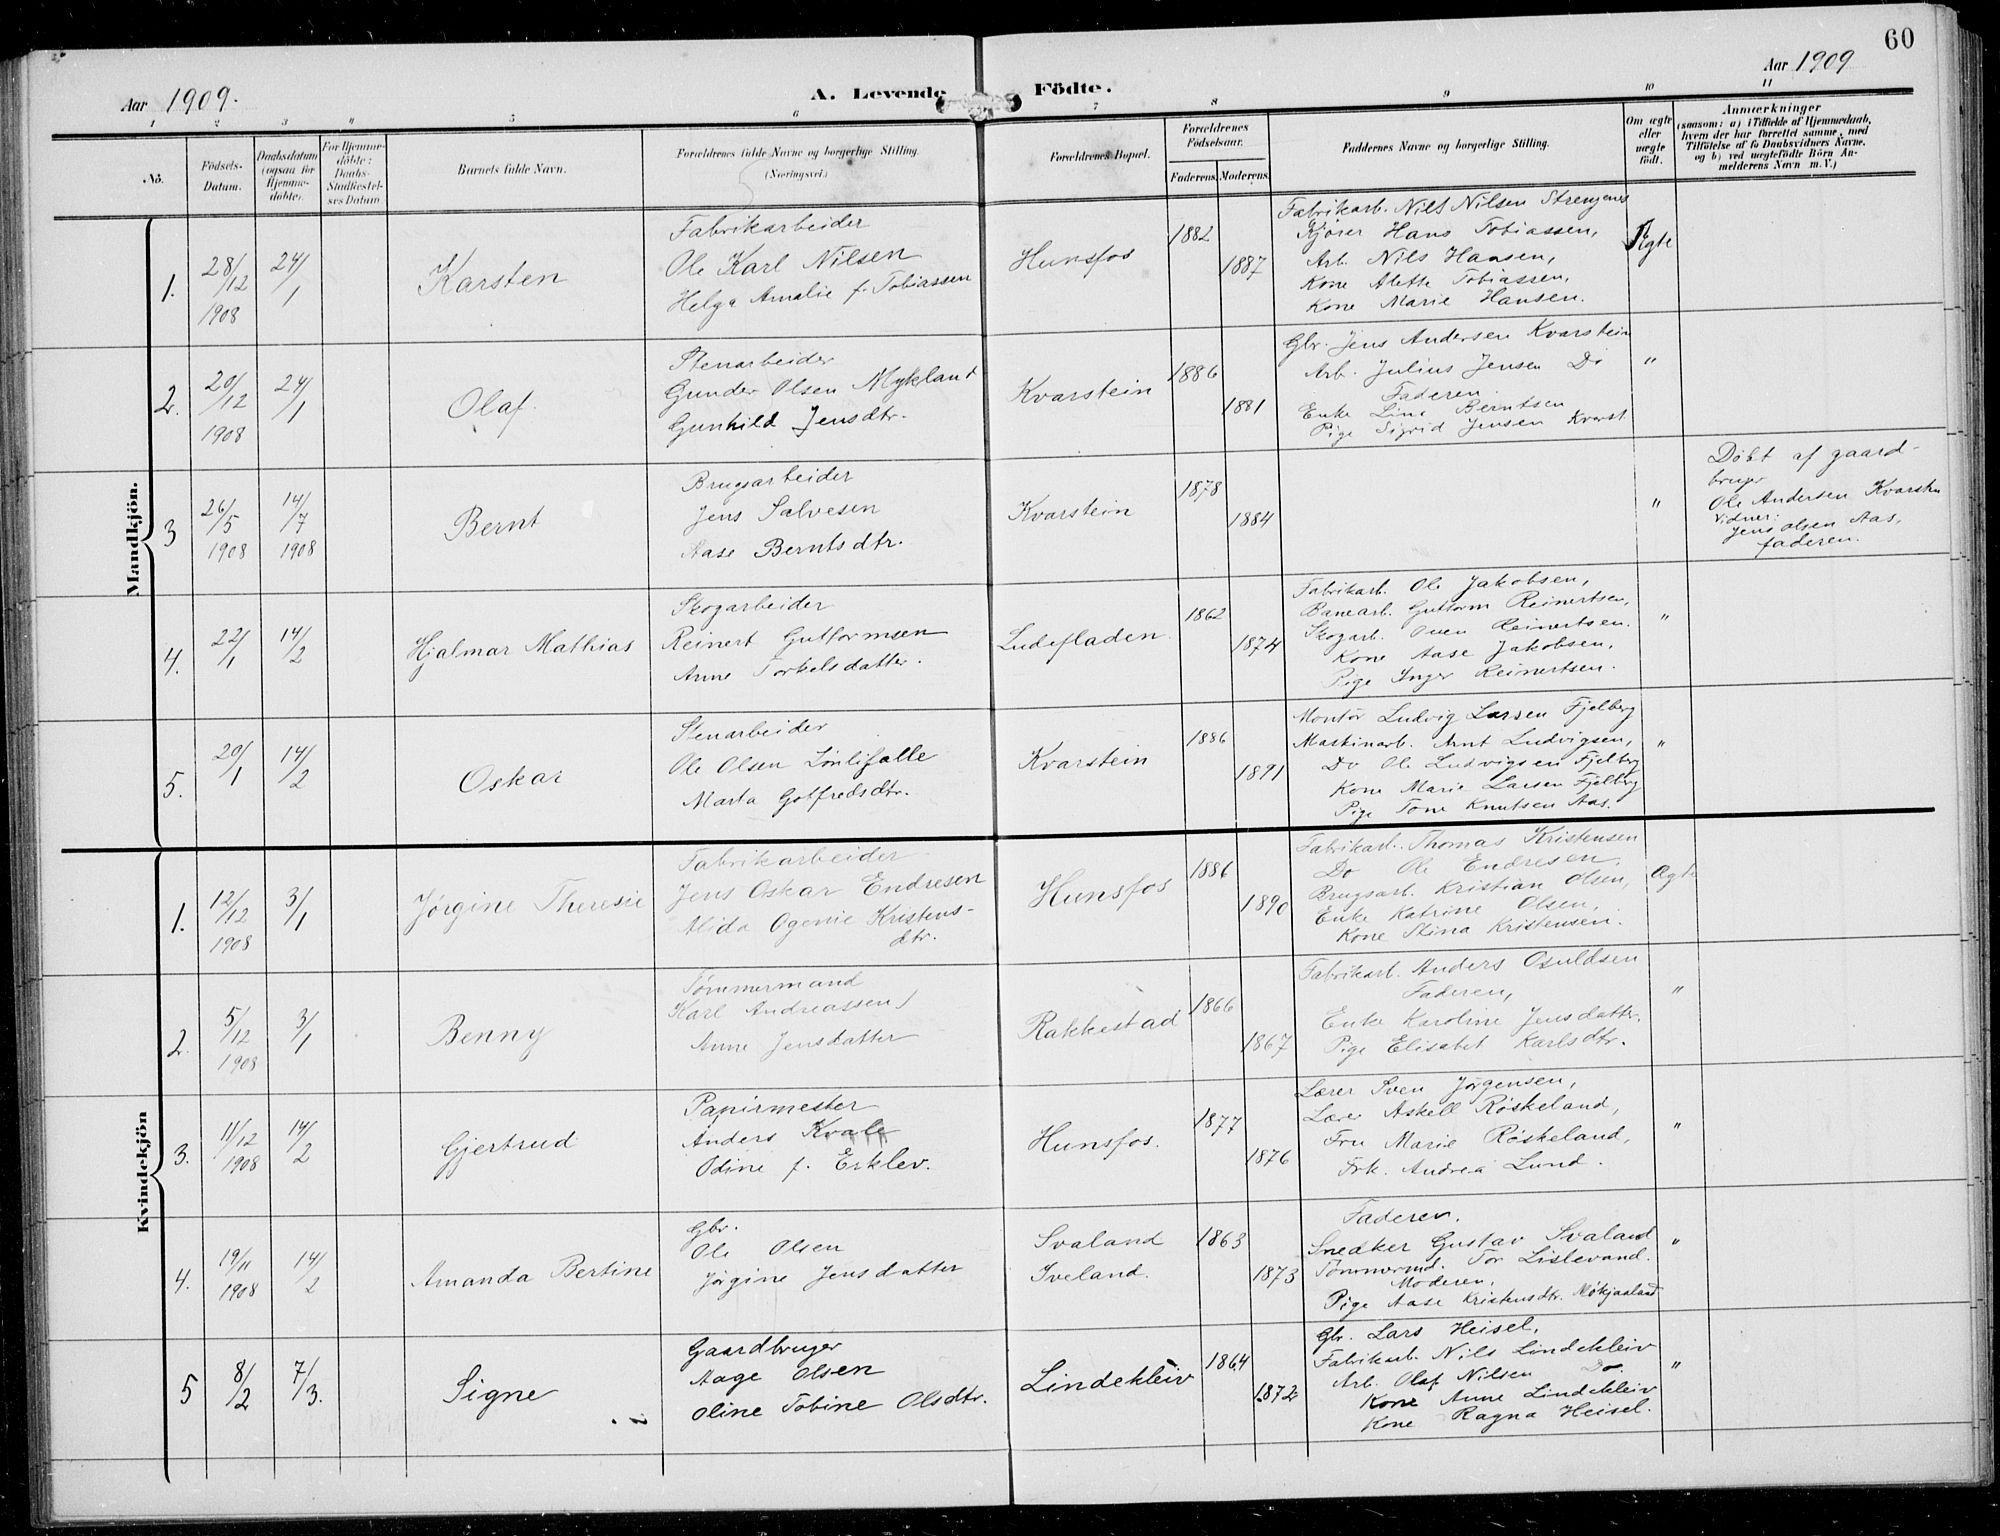 60
Aar 1909.
A. Levende Födte.
Aar 1909
1 2 3 4 5 6 7 8 9 10 11
No.
Födsels-Datum.
Daabsdatum (ogsaa for Hjemme-døbte).
For Hjemme-døbte: Daabs-Stadfæstel-ses Datum
Barnets fulde Navn.
Forældrenes fulde Navne og borgerlige Stilling.
(Næringsvei.)
Forældrenes Bopæl.
Forældrenes Födselsaar.
Faderens. Moderens.
Faddernes Navne og borgerlige Stilling.
Om ægte eller uægte født.
Anmærkninger
(saasom: a) i Tilfælde af Hjemmedaab, hvem der har forrettet samme, med Tilföielse af to Daabsvidners Navne, og b) ved uægtefödte Börn An-melderens Navn m. V.)
Mandkjön.
1.
28/12 1908
24/1
Karsten
Fabrikarbeider
Ole Karl Nilsen
Helga Amalie f. Tobiassen
Hunsfos
1882
1887
Fabrikarb. Nils Nilsen Strengenes
Kjører Hans Tobiassen,
Arb. Nils Hansen,
Kone Alette Tobiassen,
Kone Marie Hansen.
Ægte
2.
20/12 1908
24/1
Olaf.
Stenarbeider
Gunder Olsen Mykland
Gunhild Jensdtr.
Kvarstein
1886
1881
Gbr. Jens Andersen Kvarstein
Arb. Julius Jensen Do
Faderen.
Enke Line Berntsen
Pige Sigrid Jensen Kvarst
"
3
26/5 1908
14/7 1908
Bernt
Brugsarbeider
Jens Salvesen
Aase Berntsdtr.
Kvarstein
1878
1884
"
Døbt af gaard-
bruger
Ole Andersen Kvarstein
Vidner:
Jens Olsen Aas,
faderen.
4.
22/1
14/2
Hjalmar Mathias
Skogarbeider
Reinert Guttormsen
Anne Torkelsdatter.
Ludefladen
1862
1874
Fabrikarb. Ole Jakobsen,
Banearb. Guttorm Reinertsen,
Skogarb. Reinertsen.
Kone Aase Jakobsen,
Pige Inger Reinertsen.
"
5.
20/1
14/2
Oskar
Stenarbeider
Ole Olsen
Marta Gotfredsdtr.
Kvarstein
1886
1891
Montør Ludvig Larsen Fjelberg
Maskinarb. Arnt Ludvigsen,
Do Ole Ludvigsen Fjelberg
Kone Marie Larsen Fjelberg
Pige Tone Knutsen Aas.
"
Kvindekjön
1.
12/12 1908
3/1
Jørgine Theresie
Fabrikarbeider
Jens Oskar Endresen
Alida Ogenie Kristens-
dtr.
Hunsfos
1886
1890
Fabrikarb. Thomas Kristensen
Do Ole Endresen,
Brugsarb. Kristian Olsen,
Enke Katrine Olsen,
Kone Stina Kristensen.
Ægte
2.
5/12 1908
3/1
Benny
Tømmermand
Karl Andreassen
Anne Jensdatter
Rakkestad
1866
1867
Fabrikarb. Anders Osuldsen
Faderen,
Enke Karoline Jensdatter.
Pige Elisabet Karlsdtr.
"
3.
11/12 1908
14/2
Gjertrud
Papirmester
Anders Kvale
Odine f. Esklev.
Hunsfos.
1877
1876
Lærer Sven Jørgensen,
Lær Askell Røskeland,
Fru Marie Røskeland,
Frk. Andrea Lund.
"
4.
19/11 1908
14/2
Amanda Bertine
Gbr.
Ole Olsen
Jørgine Jensdatter
Svaland
Iveland.
1863
1873
Faderen.
Snedker Gustav Svaland
Tømmermd. Tor Lislevand.
Moderen.
Pige Aase Kristensdtr. Møkjaaland
"
5
8/2
7/3.
Signe
Gaardbruger
Aage Olsen
Oline Tobine Olsdtr.
Lindekleiv
1864
1872
Gbr. Lars Heisel,
Fabrikarb. Nils Lindekleiv
Arb. Olaf Nilsen Do.
Kone Anne Lindekleiv
Kone Ragna Heisel.
"